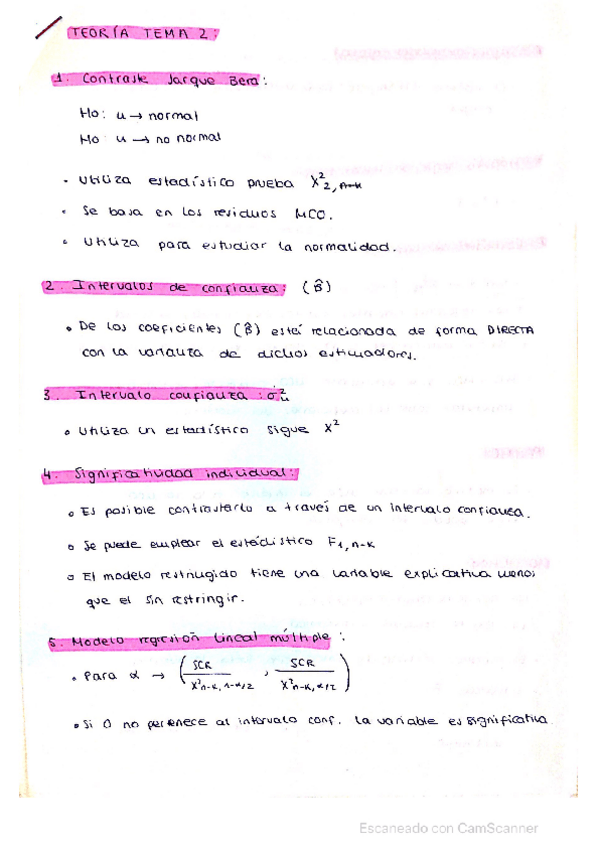 TEORÍA TEMA 2:
1. Contraste Jarque Bera:
Ho: u → normal
Ho: u → no normal
• Utiliza estadístico prueba X²2,n-k
• Se basa en los residuos MCO.
• Utiliza para estudiar la normalidad.
2. Intervalos de confianza: (β̂)
• De los coeficientes (β̂) está relacionada de forma DIRECTA
con la varianza de dichos estimadores.
3. Intervalo confianza: σ²u
• Utiliza un estadístico sigue X²
4. Significatividad individual:
• Es posible contrastarlo a través de un intervalo confianza.
• Se puede emplear el estadístico F1,n-k
• El modelo restringido tiene una variable explicativa menos
que el sin restringir.
5. Modelo regresión lineal múltiple:
• Para α → (SCR / X²n-k,1-α/2 , SCR / X²n-k,α/2)
• Si 0 no pertenece al intervalo conf. la variable es significativa.
Escaneado con CamScanner